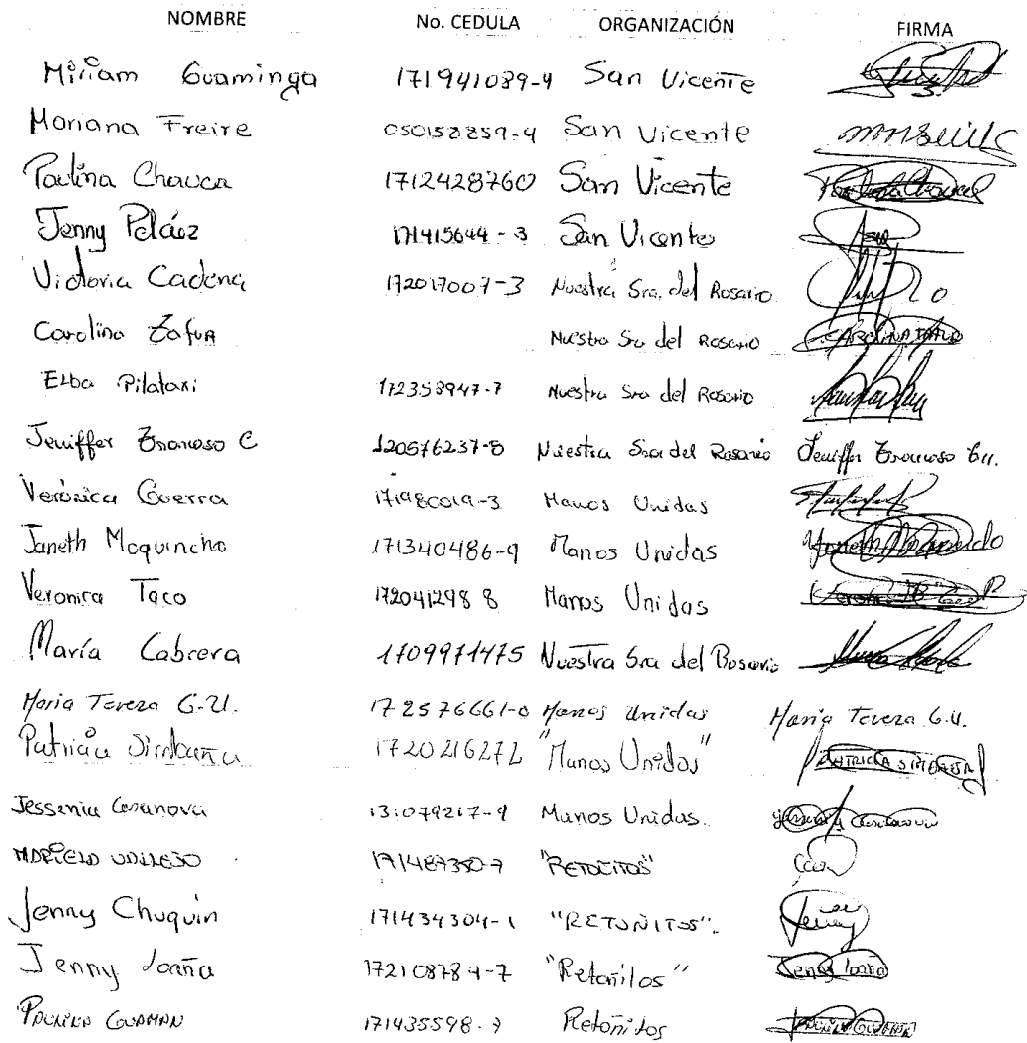 NOMBRE No. CEDULA ORGANIZACIÓN FIRMA
Miriam Guaminga 171941089-4 San Vicente
Mariana Freire 050152859-4 San Vicente
Paulina Chauca 1712428760 San Vicente Paulina Chauca
Jenny Peláez 171415644-3 San Vicente
Victoria Cadena 172017007-3 Nuestra Sra. del Rosario
Carolina Nuestra Sra del Rosario CAROLINA
Elba Pilataxi 172358947-7 Nuestra Sra del Rosario
Jeniffer C 120576237-8 Nuestra Sra del Rosario Jeniffer
Verónica Guerra Manos Unidas
Janeth Moquincho 171340486-9 Manos Unidas
Veronica Taco 172041298 8 Manos Unidas
María Cabrera 1709971475 Nuestra Sra del Rosario
Maria Tereza G.U. 172576661-0 Manos Unidas Maria Tereza G.U.
Patricia 172021627 "Manos Unidas" PATRICIA
Jessenia Casanova 131079217-9 Manos Unidas.
171487350-7 "RETOÑITOS"
Jenny Chuquin 171434304-1 "RETOÑITOS". Jenny
Jenny Loaña 17210878 4-7 "Retoñitos" Jenny Loaña
PAULINA GUAMAN 171435598-7 Retoñitos PAULINA GUAMAN